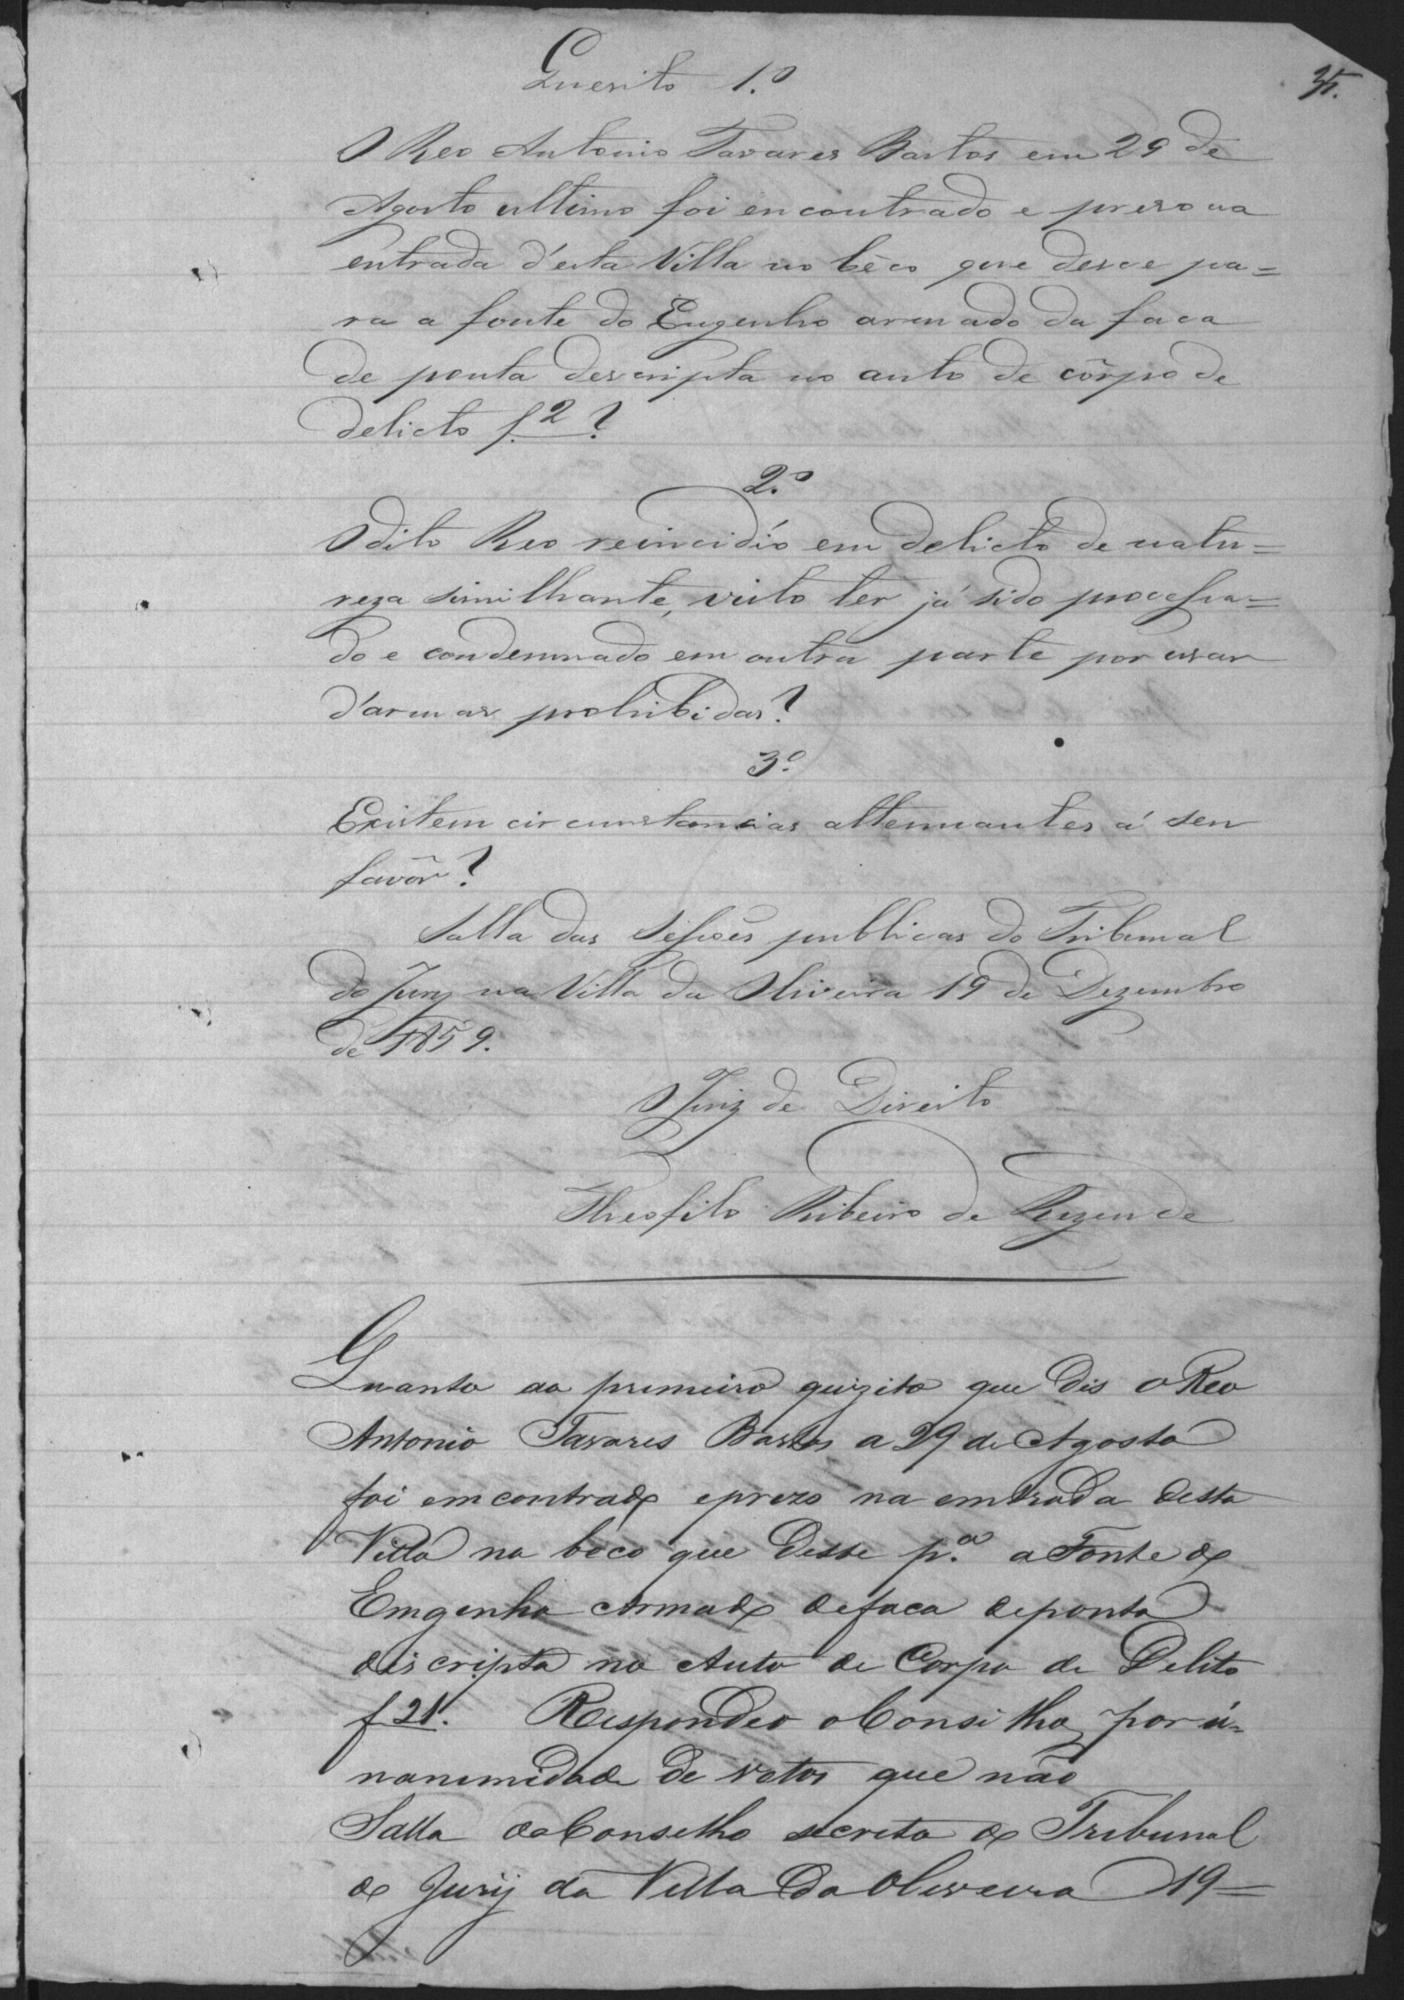 35.
Quesito 1.º
O Reo Antonio Tavares Bastos em 29 de
Agosto ultimo foi encontrado e preso na
entrada d'esta Villa no bêco que desce pa=
ra a fonte do Engenho armado da faca
de ponta descripta no auto de côrpo de
delicto f. 2?
2.º
O dito Reo reincidío em delicto de natu=
reza similhante, visto ter já sido processa=
do e condemnado em outra parte por usar
d'armas prohibidas?
3.º
Existem circumstancias attenuantes á seu
favôr?
Salla das Sessoẽs publicas do Tribunal
do Jury na Villa da Oliveira 19 de Dezembro
de 1859.
O Juiz de Direito
Theofilo Ribeiro de Rezende
Quanto ao primeiro quizito que dis o Reo
Antonio Tavares Bastos a 29 de Agosto
foi emcontrado e prezo na emtrada desta
Villa no beco que desse p.ª a Fonte do
Emgenho Armado de faca de ponta
discripta no Auto de Corpo de Delito
f 2. Respondeo o Consilho por ú=
nanemidade de votos que não
Salla do Conselho secreto do Tribunal
do Jury da Villa da Oliveira 19=